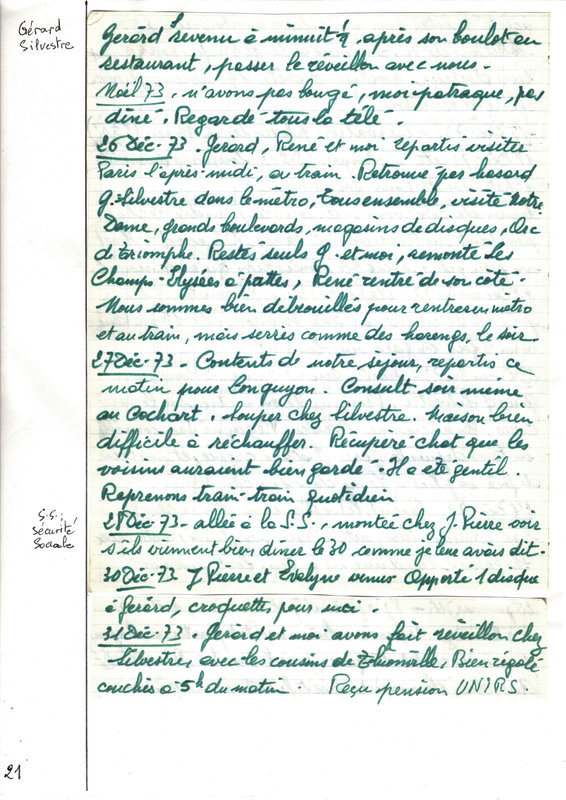 Gérard
Silvestre
Gerard revenu à minuit ½ après son boulot au
restaurant, passer le réveillon avec nous.
Noël 73, n'avons pas bougé, moi patraque, pas
diné. Regardé tous la télé.
26 Déc. 73. Jerard, René et moi repartis visiter
Paris l'après-midi, au train. Retrouvé par hasard
G. Silvestre dans le métro, tous ensemble, visité Notre
Dame, grands boulevards, magasins de disques, Arc
de Triomphe. Restés seuls G. et moi, remonté les
Champs-Elysées à pattes, René rentré de son côté.
Nous sommes bien débrouillés pour rentrer en métro
et au train, mais serrés comme des harengs, le soir.
27 Déc. 73 - Contents de notre séjour, repartis ce
matin pour Longuyon. Consult soir même
au Cochart. Souper chez Silvestre. Maison bien
difficile à réchauffer. Récupéré chat que les
voisins auraient bien gardé. Il a été gentil.
Reprenons train-train quotidien
S.S.:
Sécurité
Sociale
28 Déc. 73 - allée à la S.S., montée chez J. Pierre voir
s'ils viennent bien diner le 30 comme je leur avais dit.
30 Déc. 73 J Pierre et Evelyne venus Apporté 1 disque
à Gerard, croquettes pour moi.
31 Déc. 73. Jerard et moi avons fait réveillon chez
Silvestre, avec les cousins de Thionville, Bien rigolé
couchés à 5h du matin. Reçu pension UNIRS.
21